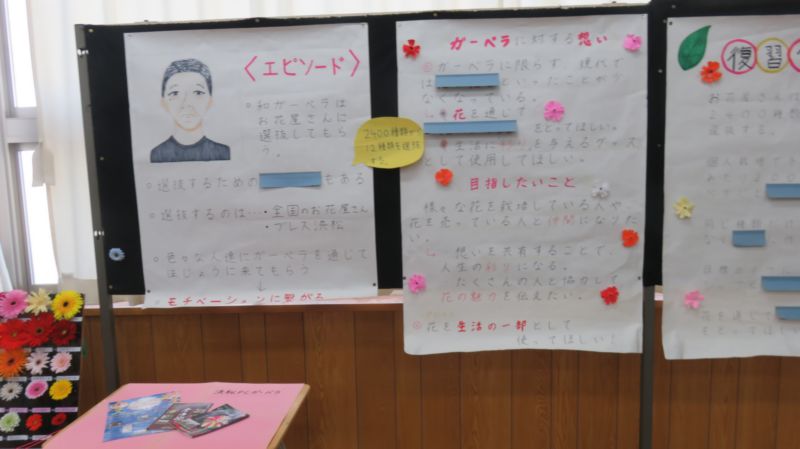 〈エピソード〉
○和ガーベラは
お花屋さんに
選抜してもら
う。
○選抜するための
もある
○選抜するのは…・全国のお花屋さん
・プレス浜松
○色々な人達にガーベラを通じて
ほじょうに来てもらう
↓
モチベーションに繋がる
2400種類から
12種類を選抜
する。
ガーベラに対する想い
◎ガーベラに限らず、現代で
は
といったことが少
なくなっている。
花を通じて
をとってほしい。
生活に彩りを与えるグッズ
として使用してほしい。
目指したいこと
様々な花を栽培している人や
花を売っている人と仲間になりた
い。
想いを共有することで、
人生の彩りになる。
たくさんの人と協力して
花の魅力を伝えたい。
◎花を生活の一部として
使ってほしい！
復習
お花屋さん
2400種
選抜する。
浜松PCガーベラ